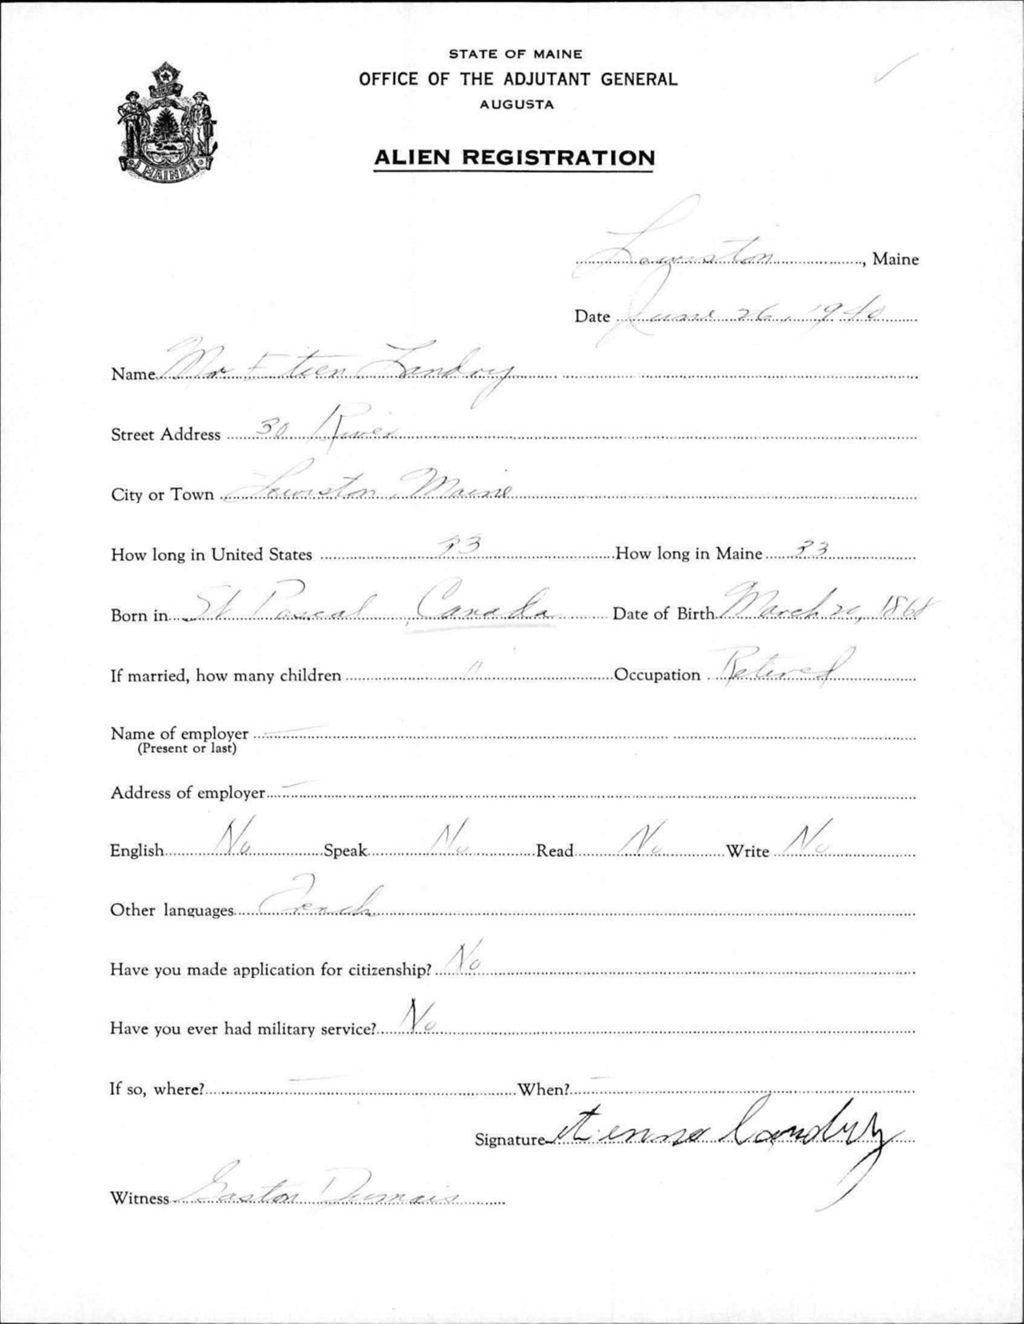 STATE OF MAINE
OFFICE OF THE ADJUTANT GENERAL
AUGUSTA
ALIEN REGISTRATION
MAINE
Lewiston, Maine
Date June 26, 1940
Name Mr Etien Landry
Street Address 30 River
City or Town Lewiston, Maine
How long in United States 33 How long in Maine 33
Born in St Pascal, Canada Date of Birth March 20, 1868
If married, how many children 11 Occupation Retired
Name of employer —
(Present or last)
Address of employer —
English No Speak No Read No Write No
Other languages French
Have you made application for citizenship? No
Have you ever had military service? No
If so, where? — When? —
Signature Landry
Witness Gaston Dumais